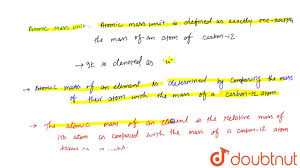 Atomic mass unit: Atomic mass unit is defined as exactly one-twelfth
the mass of an atom of carbon-12
→ It is denoted as 'u'
→ Atomic mass of an element is determined by comparing the mass
of their atom with the mass of a carbon-12 atom
→ The atomic mass of an element is the relative mass of
its atom as compared with the mass of a carbon-12 atom
taken as
doubtnut